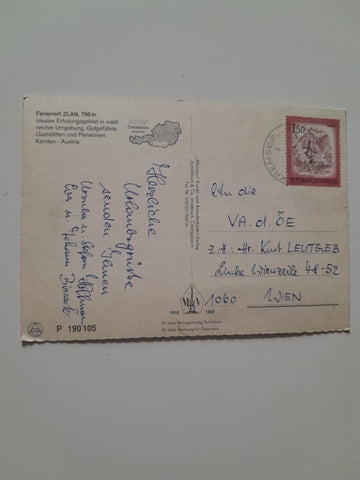 Ferienort ZLAN, 790 m
Ideales Erholungsgebiet in wald-
reicher Umgebung. Gutgeführte
Gaststätten und Pensionen.
Kärnten - Austria
AUSTRIA
ÖSTERREICH
Herzliche
Urlaubsgrüße
senden Ihnen
Ursula u. Stefan
Eva u. Johann
P 190 105
1918
1968
50 Jahre Werbung für Österreich
1.50
S
REPUBLIK ÖSTERREICH
An die
VA. d. ÖE
z. H.: Hr. Kurt LEUTGEB
Linke Wienzeile 48-52
1060 WIEN